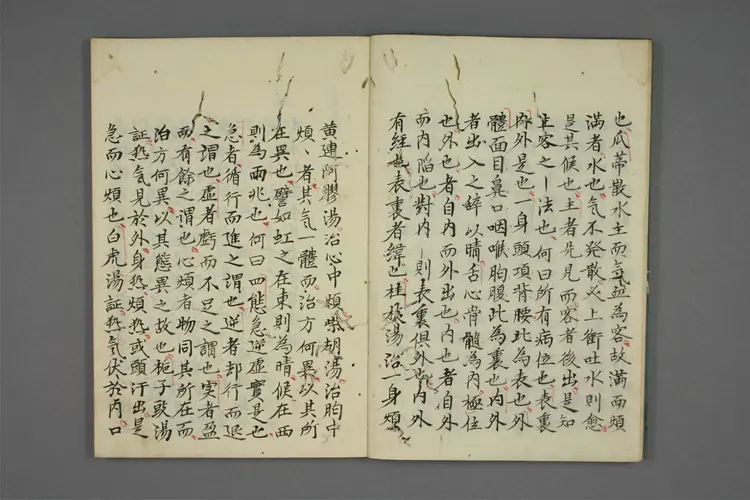 也瓜蒂散水主而氣血為客故滿而煩
滿者水也氣不發散必上衝吐水則愈
是其候也主者先見而客者後出是知
主客之一法也何曰所有病位也表裏
内外是也一身頭項背腰此為表也外
體面目鼻口咽喉胸腹此為裏也内外
者出入之辞以晴舌心骨髓為内極位
也外也者自内而外出也内也者自外
而内陷也對内則表裏俱外也内外
有經也表裏者緯也桂枝湯治一身煩
黄連阿膠湯治心中煩柴胡湯治胸中
煩、者其氣一體而治方何異以其所
在異也譬如虹之在東則為晴候在西
則為雨兆也何曰四態急逆虚實是也
急者循行而進之謂也逆者却行而退
之謂也虚者虧而不足之謂也実者盈
而有餘之謂也心煩者物同其所在而
治方何異以其態異之故也梔子豉湯
証熱氣見於外身熱煩熱或頭汗出是
急而心煩也白虎湯証熱氣伏於内口